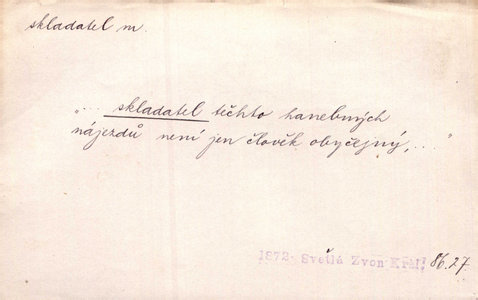 skladatel m.
"... skladatel těchto hanebných
nájezdů není jen člověk obyčejný,..."
1872 Světlá Zvon Král. 86.27